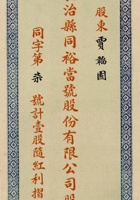 股東賈福園
治縣同裕當號股份有限公司股
同字第柒號計壹股隨紅利摺